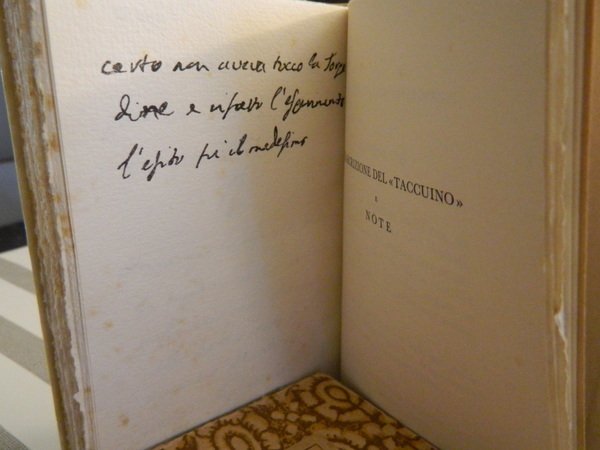 certo non aveva tocco la
dine e l'Esperimento
l'esito fù il medesimo
CRIZIONE DEL «TACCUINO»
E
NOTE